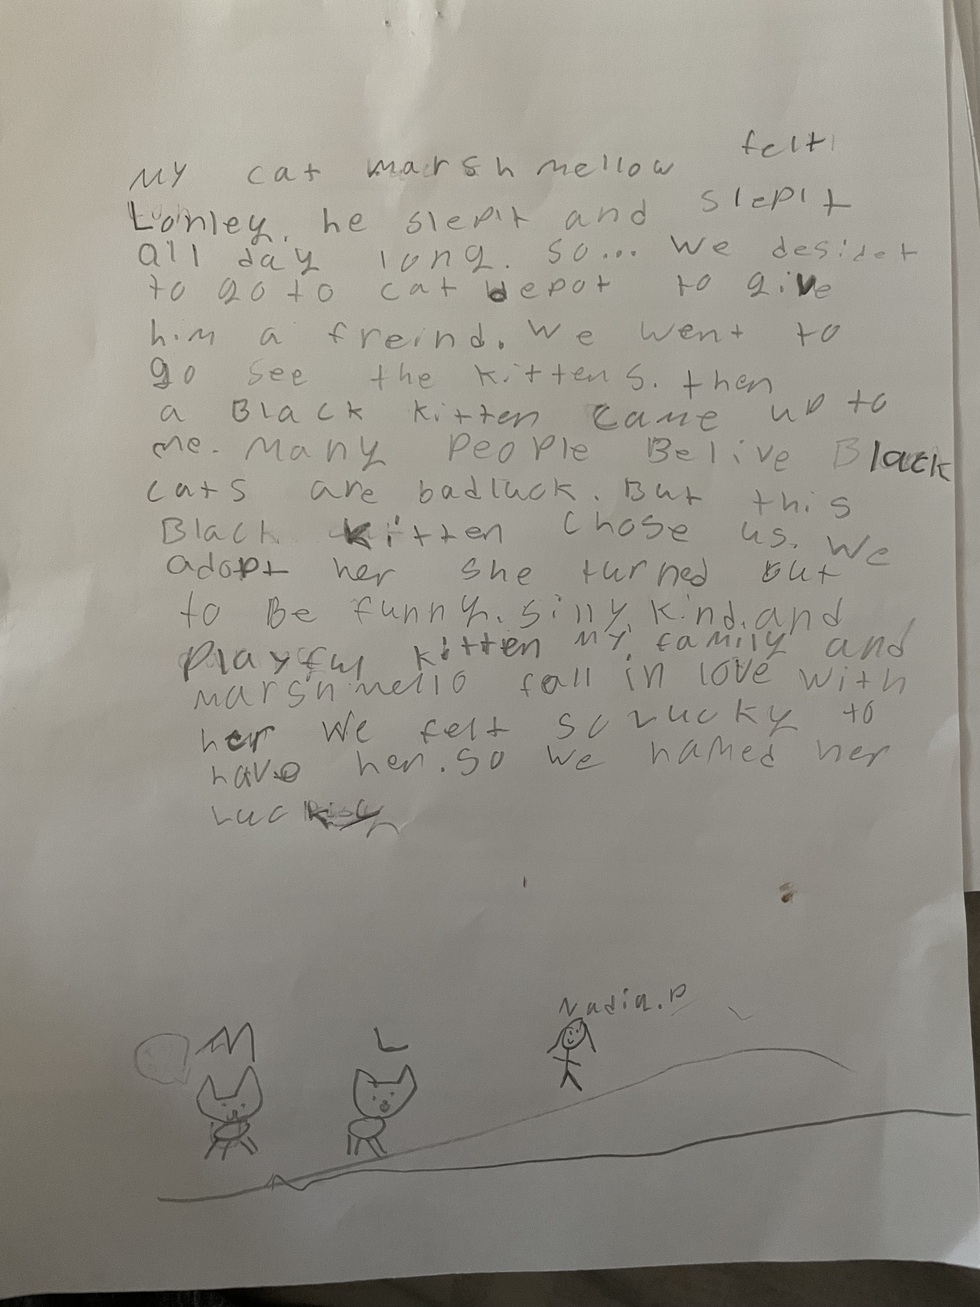 My cat marshmellow felt
Lonley. he slepit and slepit
all day long. so... We desidet
to go to cat depot to give
him a freind. We went to
go see the kittens. then
a Black kitten came up to
me. Many People Belive Black
cats are badluck. But this
Black kitten chose us. We
adopt her she turned out
to Be funny, silly, kind, and
Playful kitten My family and
marshmello fall in love with
her We felt so Lucky to
have her. so we named her
M L Nadia.P